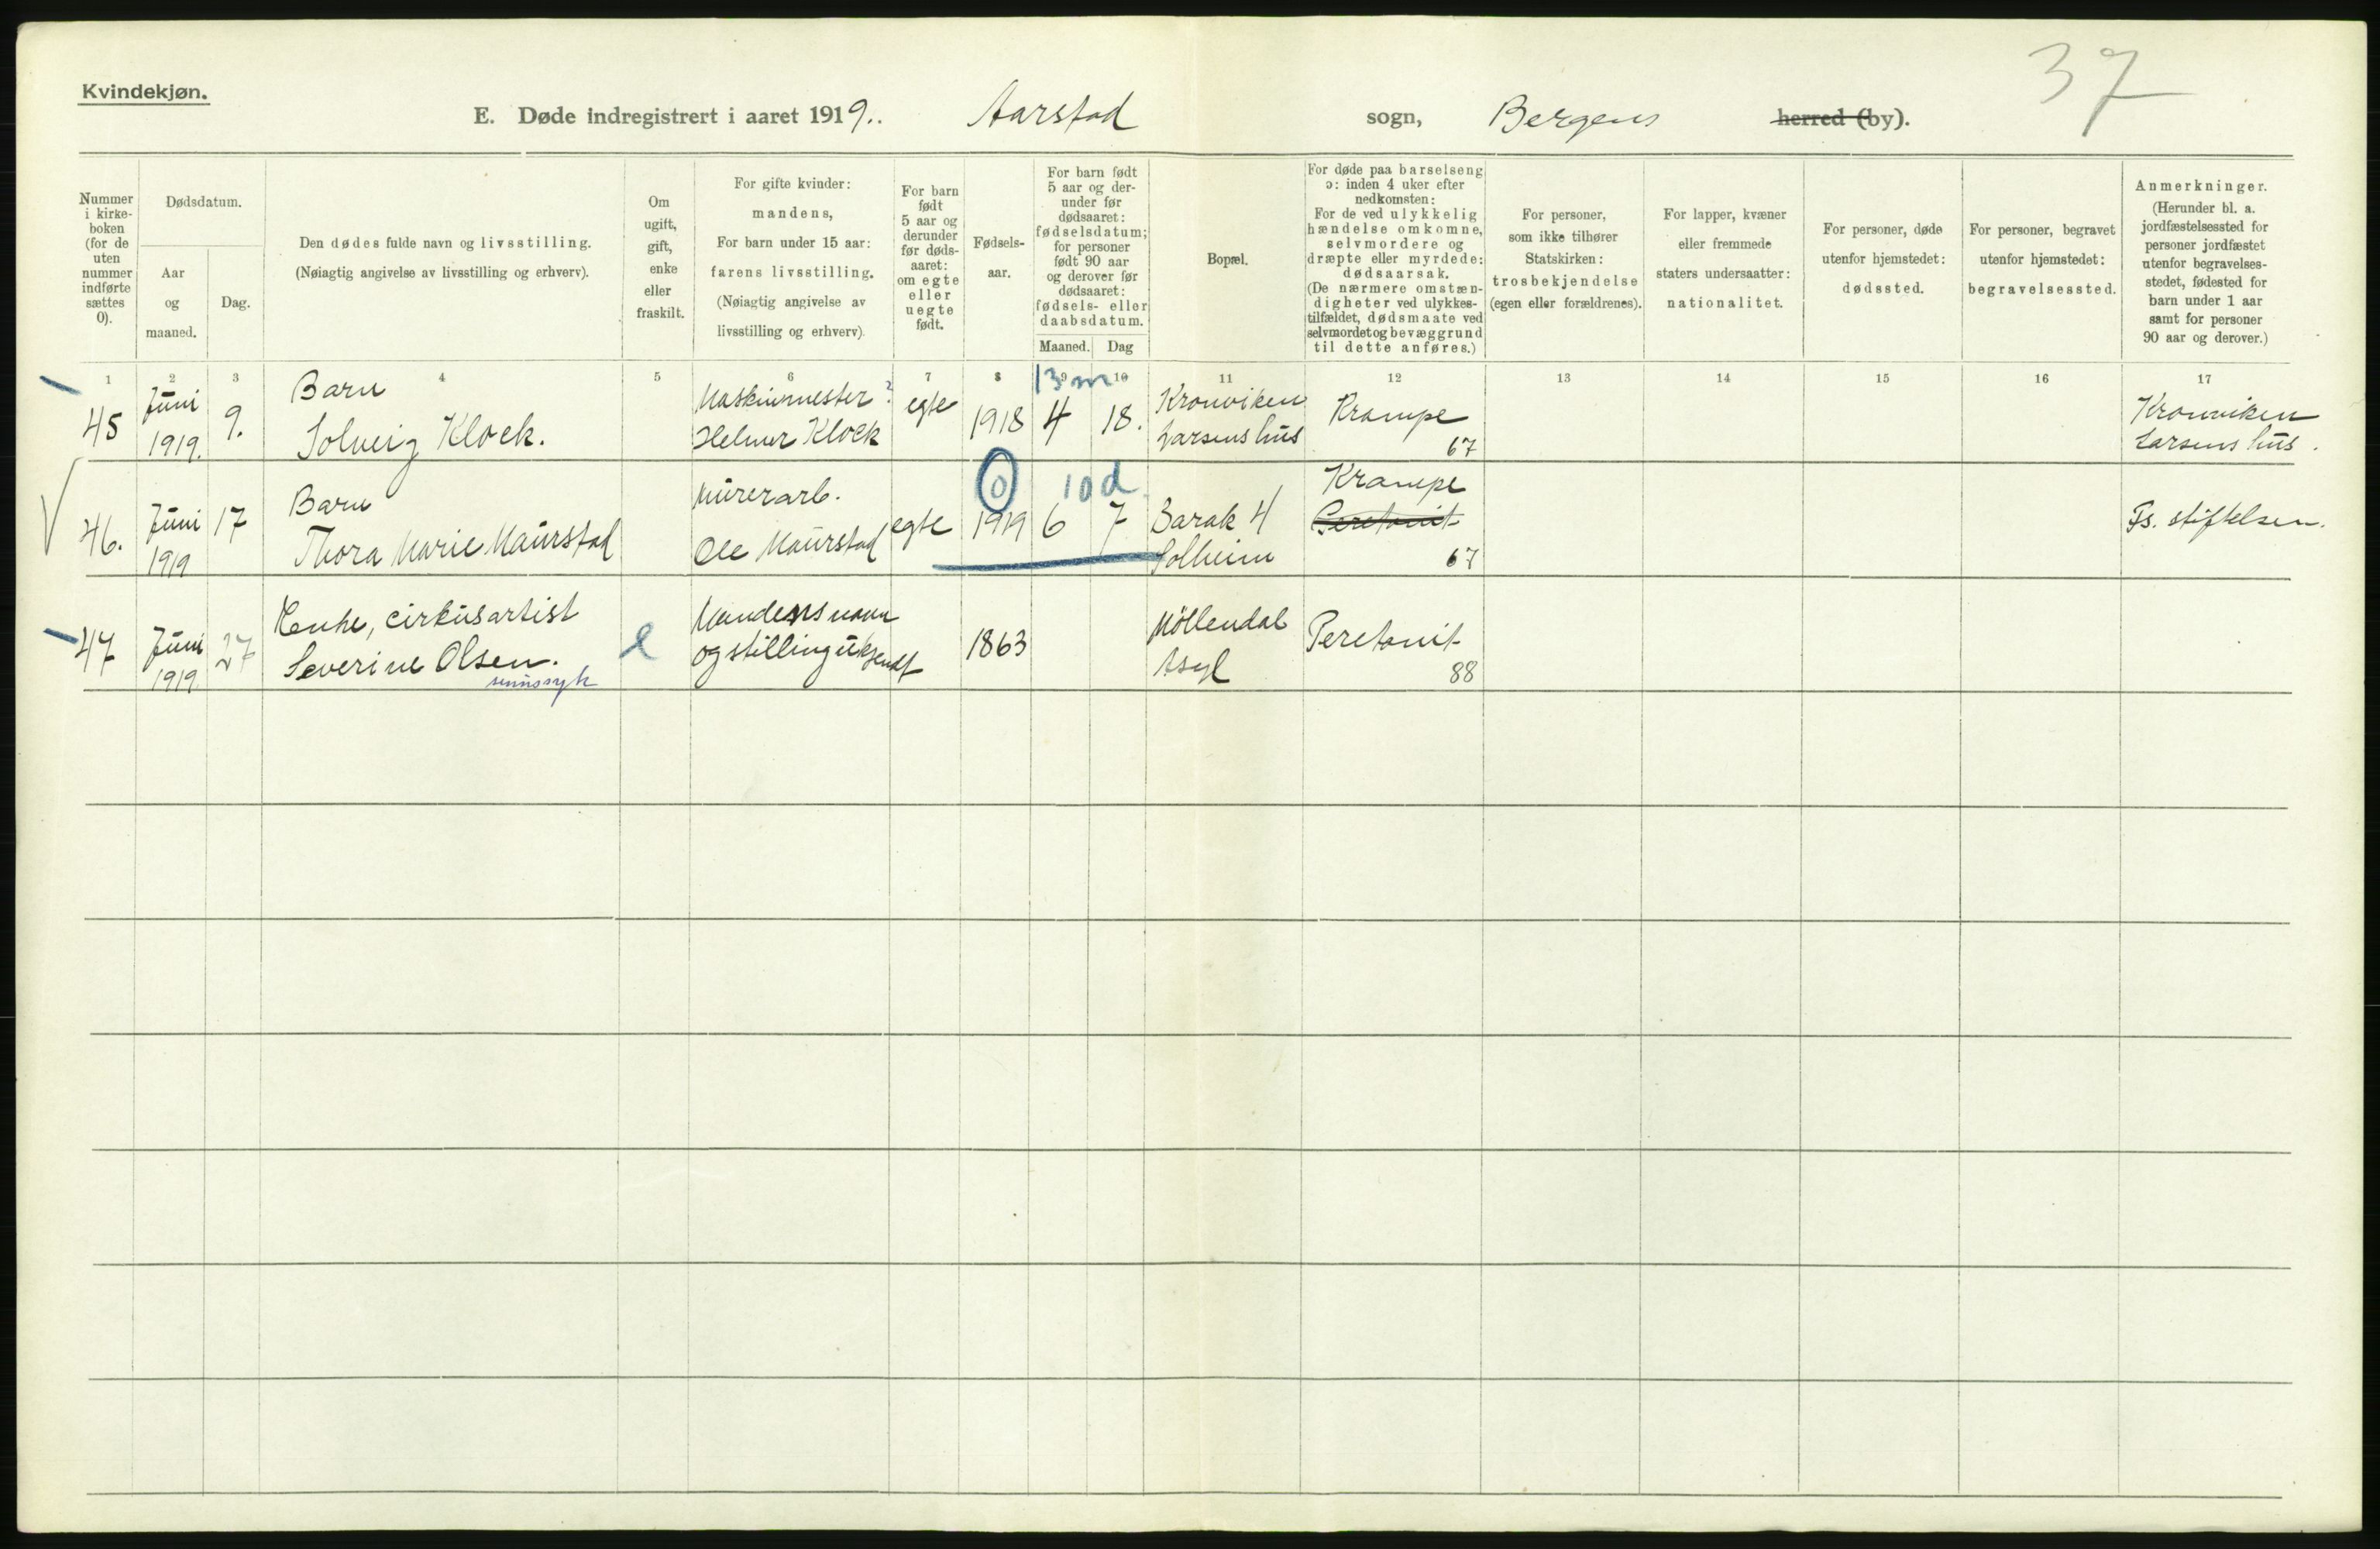 37
Kvindekjøn.
E. Døde indregistrert i aaret 1919. Aarstad sogn, Bergens herred (by).
Nummer i kirkeboken (for de uten nummer indførte sættes 0).
Dødsdatum.
Aar og maaned.
Dag.
Den dødes fulde navn og livsstilling.
(Nøiagtig angivelse av livsstilling og erhverv).
Om ugift, gift, enke eller fraskilt.
For gifte kvinder:
mandens,
For barn under 15 aar:
farens livsstilling.
(Nøiagtig angivelse av
livsstilling og erhverv).
For barn født 5 aar og derunder før dødsaaret: om egte eller uegte født.
Fødselsaar.
For barn født 5 aar og derunder før dødsaaret: fødselsdatum; for personer født 90 aar og derover før dødsaaret: fødsels- eller daabsdatum.
Maaned. Dag
Bopæl.
For døde paa barselseng
ɔ: inden 4 uker efter
nedkomsten:
For de ved ulykkelig
hændelse omkomne,
selvmordere og
dræpte eller myrdede:
dødsaarsak.
(De nærmere omstæn-
digheter ved ulykkes-
tilfældet, dødsmaate ved
selvmordet og bevæggrund
til dette anføres.)
For personer,
som ikke tilhører
Statskirken:
trosbekjendelse
(egen eller forældrenes).
For lapper, kvæner
eller fremmede
staters undersaatter:
nationalitet.
For personer, døde
utenfor hjemstedet:
dødssted.
For personer, begravet
utenfor hjemstedet:
begravelsessted.
Anmerkninger.
(Herunder bl. a.
jordfæstelsessted for
personer jordfæstet
utenfor begravelses-
stedet, fødested for
barn under 1 aar
samt for personer
90 aar og derover.)
1 2 3 4 5 6 7 8 9 10 11 12 13 14 15 16 17
13 m
45 Juni 9. Barn Maskinmester? egte 1918 4 18. Kronviken Krampe Kronviken
1919. Solveig Klock. Helmer Klock Larsens hus 67 Larsens hus.
0 10 d.
46. Juni 17 Barn Murerarb. egte 1919 6 7 Barak 4 Krampe Peretonit Fs. stiftelsen.
1919 Thora Marie Maurstad Ole Maurstad Solheim 67
47 Juni 27 Enke, cirkusartist e Mandens navn 1863 Möllendal Peretonit
1919. Severine Olsen. og stilling ukjendt Asyl 88
sinnssyk